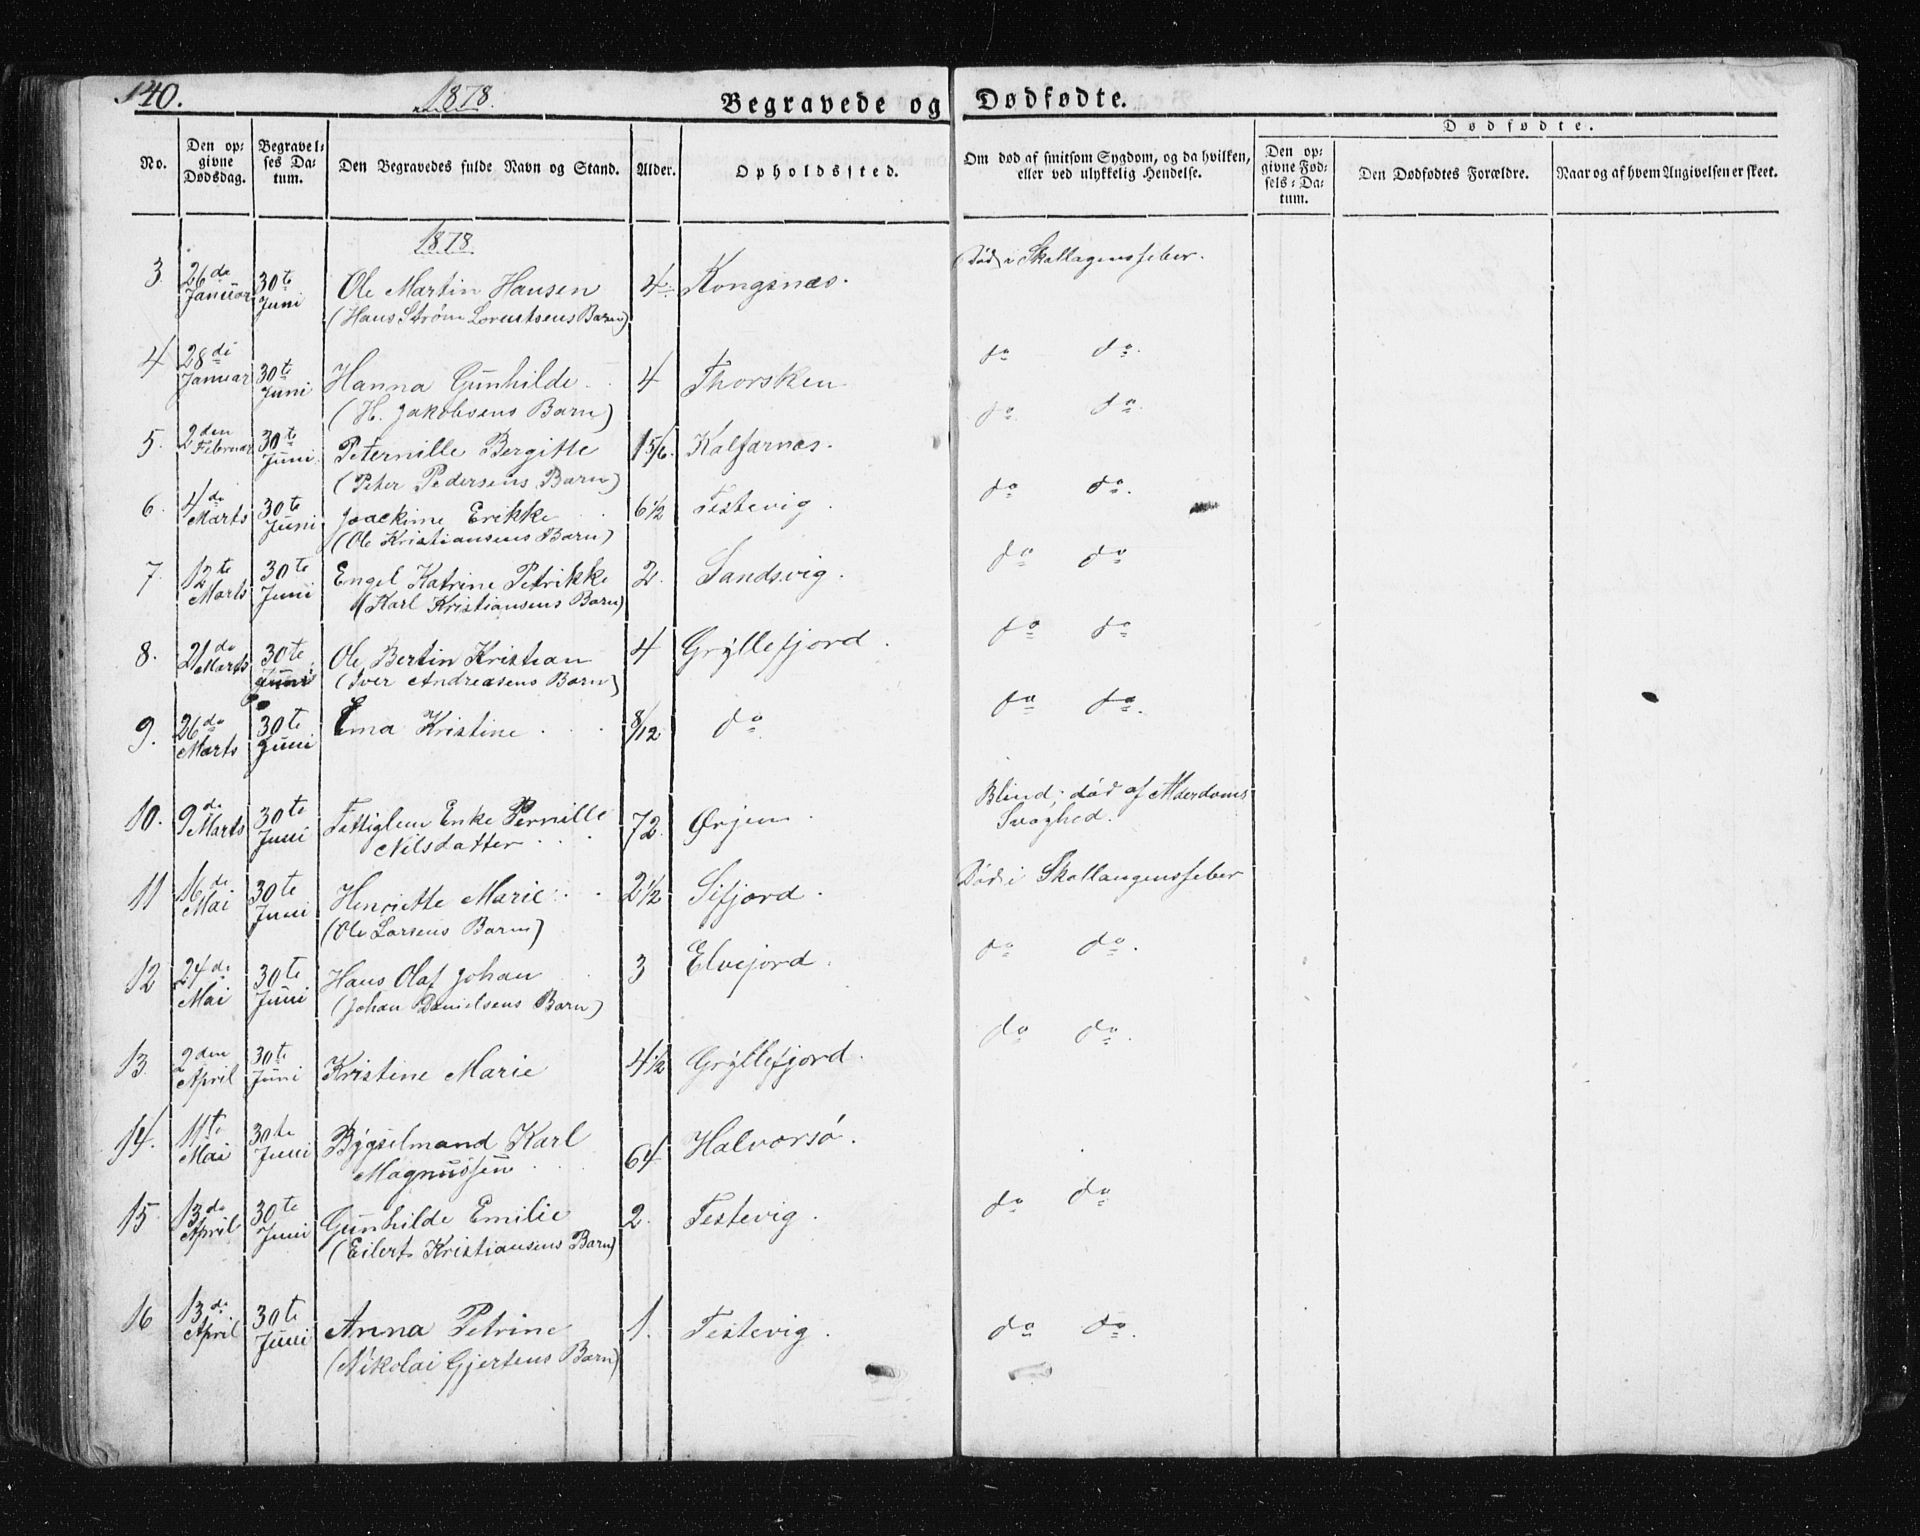 140.
1878.
Begravede og Dødfødte.
No.
Den opgivne Dødsdag.
Begravelses Datum.
Den Begravedes fulde Navn og Stand.
Alder.
Opholdssted.
Om død af smitsom Sygdom, og da hvilken, eller ved ulykkelig Hendelse.
Dødfødte.
Den opgivne Fødsels-Datum.
Den Dødfødtes Forældre.
Naar og af hvem Angivelsen er skeet.
1878.
3. 26de Januar 30te Juni Ole Martin Hansen 4 Kongsnæs. Død i Skallagensfeber.
(Hans Strøm Lorentsens Barn)
4 28de Januar 30te Juni Hanna Gunhilde 4 Thorsken do do.
(H. Jakobsens Barn)
5. 2den Februar 30te Juni Peternille Bergitte 1 5/6. Kalfarnæs. do. do.
(Peter Pedersens Barn)
6. 4de Marts 30te Juni Joackime Erikke 6 1/2 Testevig. do do.
(Ole Kristiansens Barn)
7. 12te Marts 30te Juni Engel Katrine Petrikke 2. Sandsvig. do do
(Karl Kristiansens Barn)
8. 21de Marts 30te Juni Ole Bertin Kristian 4 Gryllefjord. do do
(Iver Andreasens Barn)
9. 26de Marts 30te Juni Ema Kristine 8/12 do do do.
10. 9de Marts 30te Juni Fattiglem Enke Pernille 72. Ørjen. Blind; død af Alderdoms
Nilsdatter Svaghed.
11 16de Mai 30te Juni Henriette Marie 2 1/2 Sifjord. Død i Skallangensfeber
(Ole Larsens Barn)
12 24de Mai 30te Juni Hans Olaf Johan 3 Elvejord. do do.
(Johan Danielsens Barn)
13. 2den April 30te Juni Kristine Marie 4 1/2 Gryllefjord. do do.
14. 11te Mai 30te Juni Bygselmand Karl 64 Halvorsø.
Magnussen
15. 13de April 30te Juni Gunhilde Emilie 2. Testevig. do do
(Eilert Kristiansens Barn)
16 13de April 30te Juni Anna Petrine 1. Testevig. do do.
(Nikolai Gjertsens Barn)